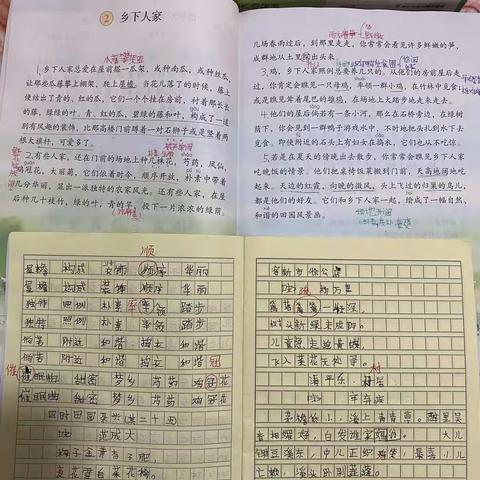 2 乡下人家
1.乡下人家总爱在屋前搭一瓜架,或种南瓜,或种丝瓜,
让那些瓜藤攀上棚架,爬上屋檐。当花儿落了的时候,藤上
便结出了青的、红的瓜,它们一个个挂在房前,衬着那长长
的藤,绿绿的叶。青、红的瓜,碧绿的藤和叶,构成了一道
别有风趣的装饰,比那高楼门前蹲着一对石狮子或是竖着两
根大旗杆,可爱多了。
2.有些人家,还在门前的场地上种几株花,芍药,凤仙,
鸡冠花,大丽菊,它们依着时令,顺序开放,朴素中带着
几分华丽,显出一派独特的农家风光。还有些人家,在屋
后种几十枝竹,绿的叶,青的竿,投下一片浓浓的绿荫。
几场春雨过后,到那里走走,你常常会看见许多鲜嫩的笋,
成群地从土里探出头来。
3.鸡,乡下人家照例总要养几只的。从他们的房前屋后走
过,你肯定会瞧见一只母鸡,率领一群小鸡,在竹林中觅食;
或是瞧见耸着尾巴的雄鸡,在场地上大踏步地走来走去。
4.他们的屋后倘若有一条小河,那么在石桥旁边,在绿树
荫下,你会见到一群鸭子游戏水中,不时地把头扎到水下去
觅食。即使附近的石头上有妇女在捣衣,它们也从不吃惊。
5.若是在夏天的傍晚出去散步,你常常会瞧见乡下人家
吃晚饭的情景。他们把桌椅饭菜搬到门前,天高地阔地吃
起来。天边的红霞,向晚的微风,头上飞过的归巢的鸟儿,
都是他们的好友。它们和乡下人家一起,绘成了一幅自然、
和谐的田园风景画。
顺
屋檐 构成 装饰 顺序 华丽
屋檐 构成 装饰 顺序 华丽
独特 照例 朴素 率领 踏步
独特 照例 朴素 率领 踏步
倘若 附近 和谐 捣衣 和谐
倘若 附近 和谐 捣衣 和谐 冠
催眠曲 甜蜜 梦乡 芍药 鸡冠花
催眠曲 甜蜜 梦乡 芍药 鸡冠花
四时田园杂兴其二十五
范成大
梅子金黄杏子肥,
麦花雪白菜花稀。
宿新市徐公店
宋 杨万里
篱落疏疏一径深,
树头新绿未成阴。
儿童急走追黄蝶,
飞入菜花无处寻。
清平乐·村居
宋 辛弃疾
茅檐低小,溪上青青草。醉里吴
音相媚好,白发谁家翁媪?大儿
锄豆溪东,中儿正织鸡笼。最喜小儿
亡赖,溪头卧剥莲蓬。